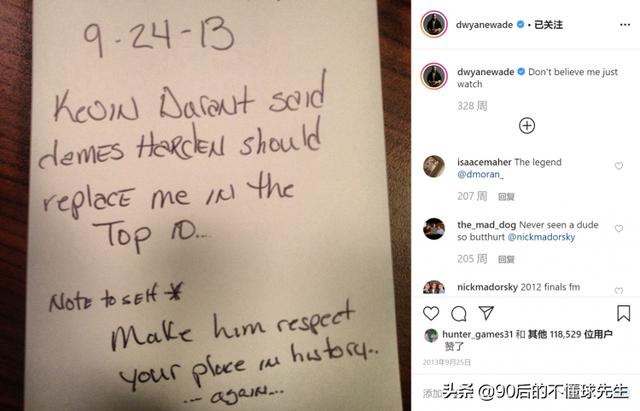 9-24-13
Kevin Darant said
James Harden should
replace me in the
Top 10...
Note to self *
Make him respect
your place in history..
... again...
dwyanewade • 已关注
dwyanewade Don't believe me just
watch
328 周
isaacemaher The legend
@dmoran_
207 周 回复
the_mad_dog Never seen a dude
so butthurt @nickmadorsky
205 周 回复
nickmadorsky 2012 finals fm
hunter_games31 和 其他 118,529 位用户
赞了
2013年9月25日
添加
头条 @90后的不懂球先生